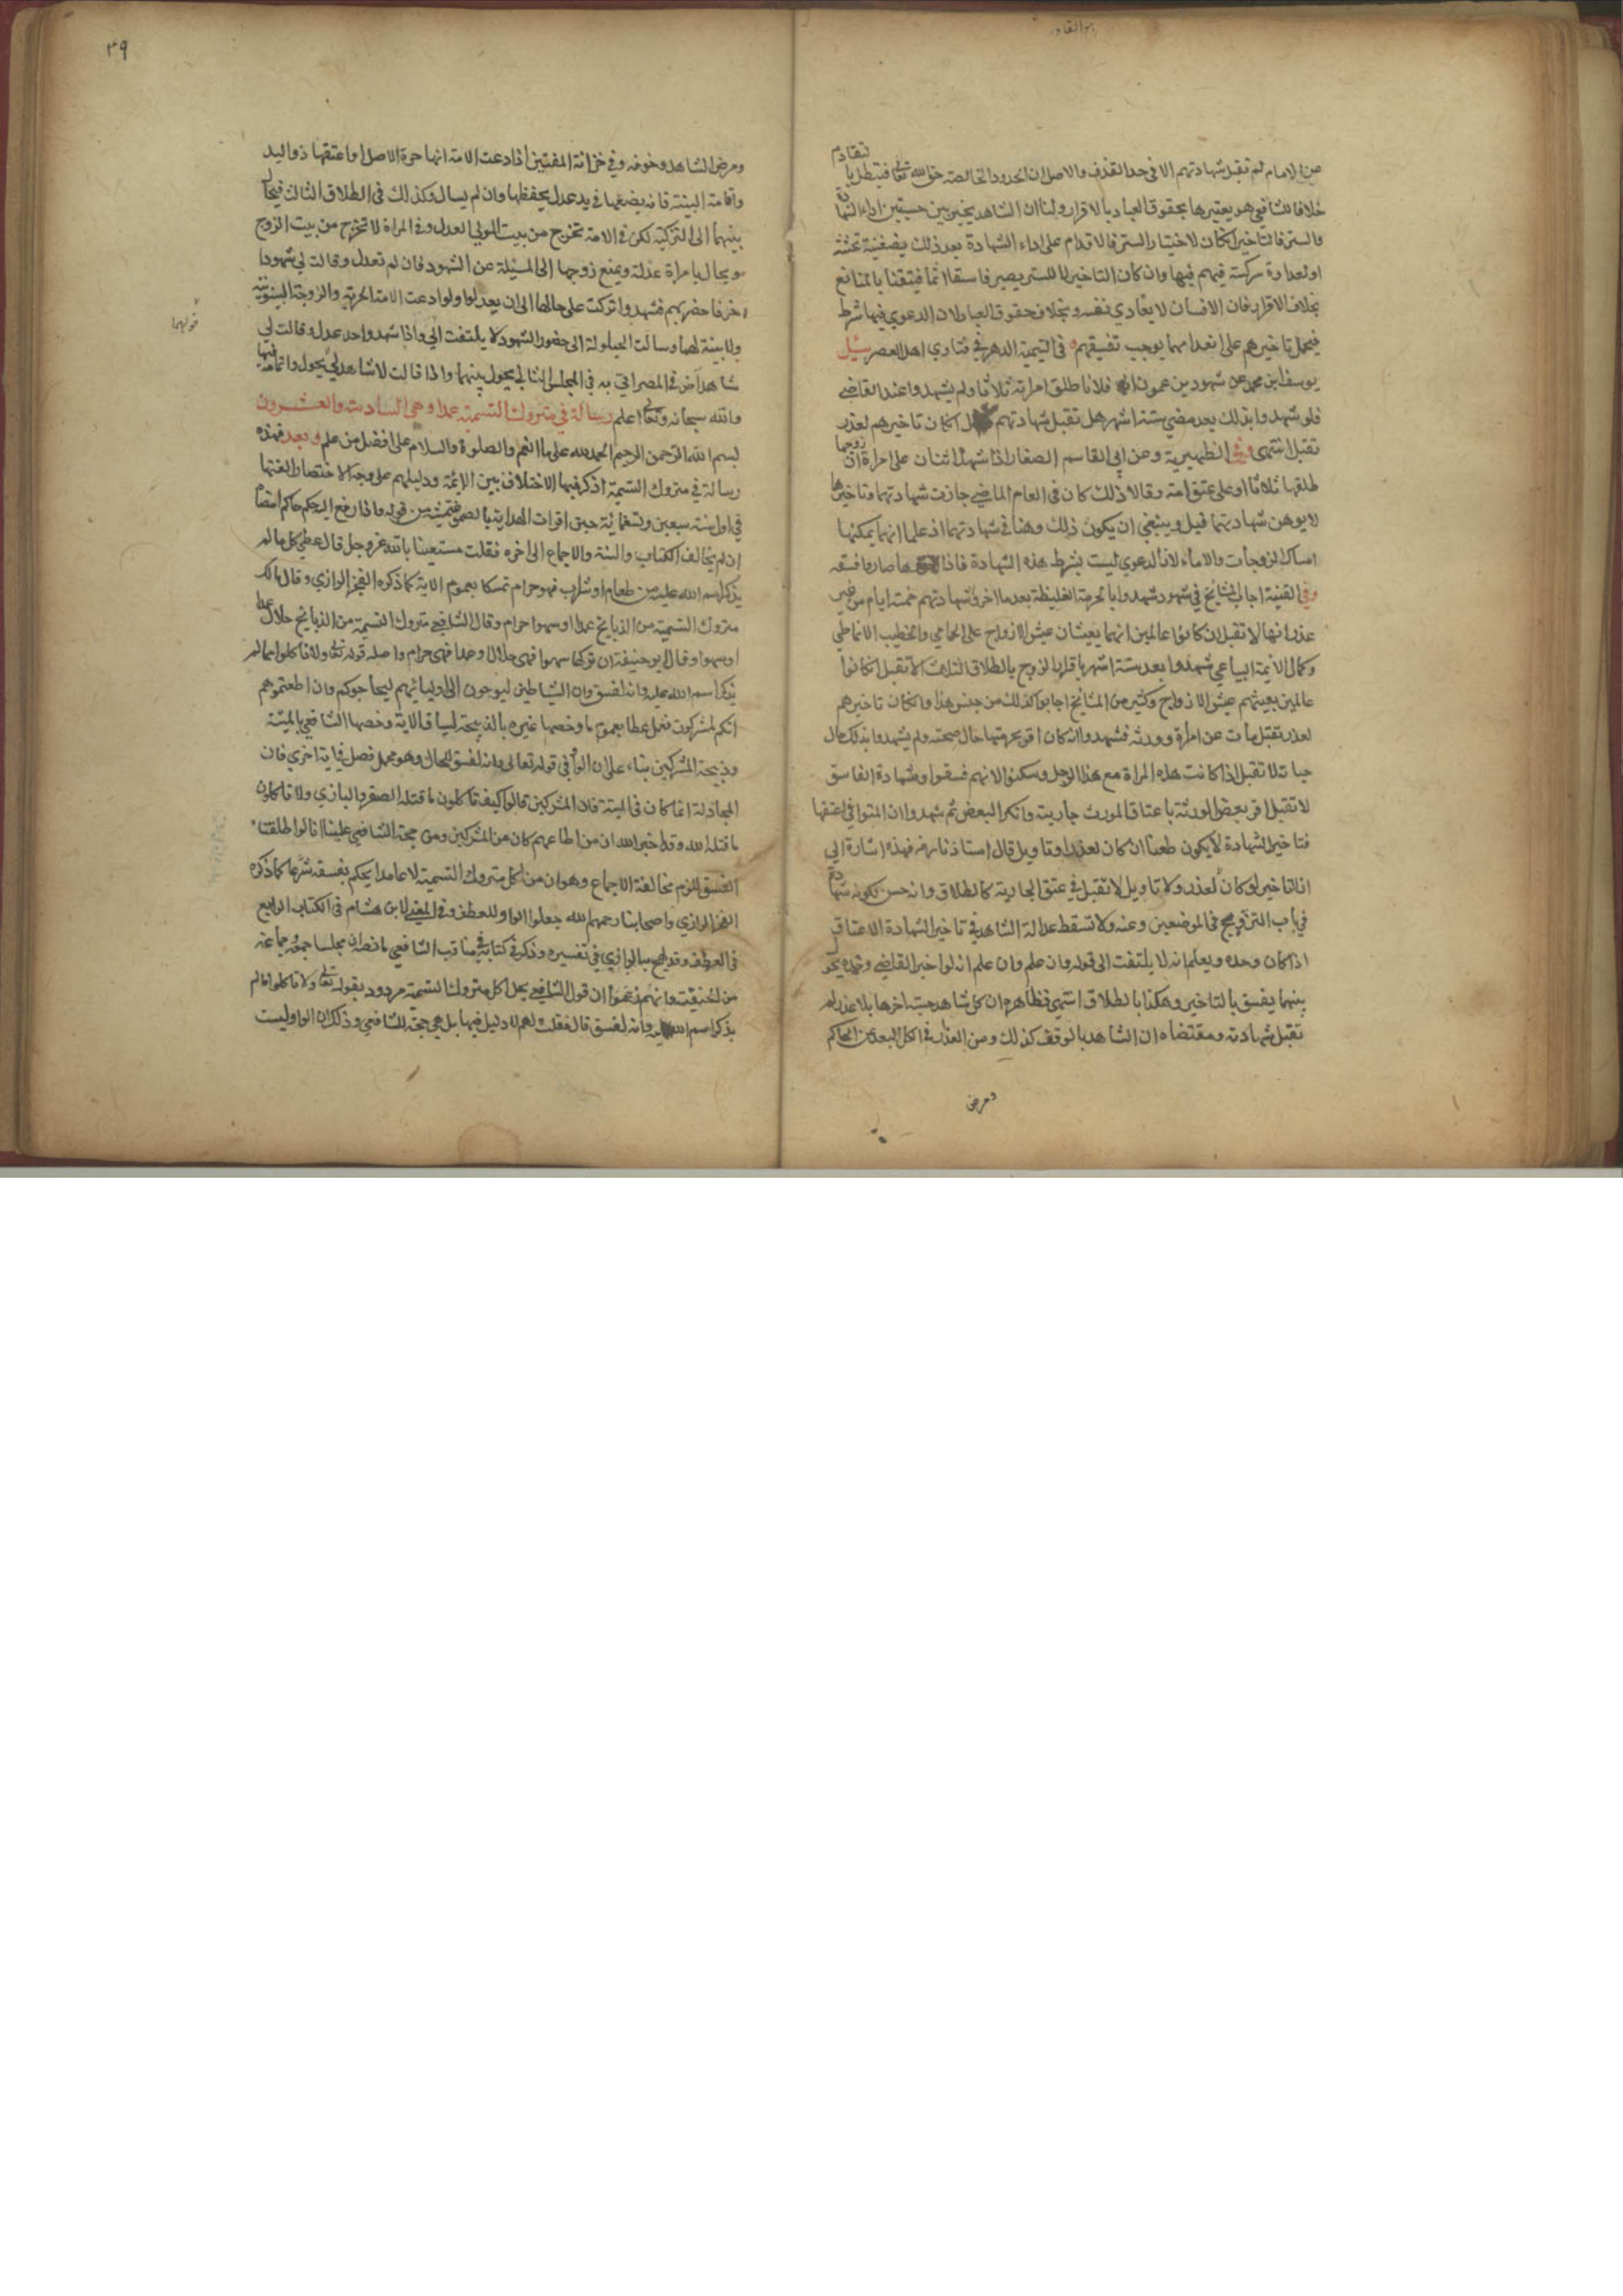 عن الامام لم تقبل شهادتهم الا في حد القذف والاصل ان الحدود الخالصة حق الله تعالى فتبطل بالتقادم
خلافا للشافعي هو يعتبرها بحقوق العباد بالاقرار ولنا ان الشاهد يخير بين حسبتين اداء الشهادة
والستر فالتاخير ان كان لاختيار الستر فالاقدام على اداء الشهادة بعد ذلك لضغينة
او لعداوة حركته فيتهم فيها وان كان التاخير لا للستر يصير فاسقا اثما فتيقنا بالمانع
بخلاف الاقرار فان الانسان لا يعادي نفسه وبخلاف حقوق العباد لان الدعوي فيها شرط
فيحمل تاخيرهم على انعدامها يوجب تفسيقهم في اليتيمة الدهر في فتاوي اهل العصر سئل
يوسف ابن محمد عن شهود يزعمون ان فلانا طلق امراته ثلاثا ولم يشهدوا عند القاضي
فلو شهدوا بذلك بعد مضي ستة اشهر هل تقبل شهادتهم ان كان تاخيرهم لعذر
تقبل انتهى وفي الظهيرية وعن ابي القاسم الصفار اذا شهد اثنان على امراة ان زوجها
طلقها ثلاثا او على عتق امة وقالا ذلك كان في العام الماضي جازت شهادتهما وتاخيرها
لا يوهن شهادتهما قيل وينبغي ان يكون ذلك وهنا في شهادتهما اذ علما انهما يمكنها
امساك الزوجات والاماء لان الدعوي ليست بشرط هذه الشهادة فاذا صاروا فسقه
وفي القنية اجاب المشايخ في شهود شهدوا بالحرمة الغليظة بعد ما اخروا شهادتهم خمسة ايام من غير
عذر انها لا تقبل ان كانوا عالمين انهما يعيشان عيش الازواج على الحامي والخطيب الانماطي
وكمال الائمة البياعي شهدوا بعد ستة اشهر باقرار الزوج بالطلاق الثلاث لا تقبل ان كانوا
عالمين بعيشهم عيش الازواج وكثير من المشايخ اجابوا كذلك من جنس هذا وان كان تاخيرهم
لعذر تقبل مات عن امراة وورثه فشهدوا انه كان اقر بحرمتها حال صحته ولم يشهدوا بذلك حال
حياته لا تقبل اذا كانت هذه المراة مع هذا الرجل وسكتوا لانهم فسقوا وشهادة الفاسق
لا تقبل اقر بعض الورثة باعتاق المورث جاريته وانكر البعض ثم شهدوا ان المتوفي اعتقها
فتاخير الشهادة لا يكون طعنا ان كان لعذر او تاويل قال استاذنا فهذه اشارة الى
ان التاخير لو كان لعذر ولا تاويل لا تقبل في عتق الجارية كالطلاق وانه حسن
في باب التزويج في الموضعين وعنه ولا تسقط عدالة الشاهد في تاخير الشهادة الاعتاق
اذا كان وحده ويعلم انه لا يلتفت الى قوله وان علم وان علم انه لو اخبر القاضي وحده يحول
بينهما يفسق بالتاخير وهكذا بالطلاق انتهى فظاهره ان كل شاهد حسبة اخرها بلا عذر لم
تقبل شهادته ومقتضاه ان الشاهد بالوقف كذلك ومن العذر في الكل البعد عن الحاكم
ومرض
٣٩
ومرض الشاهد وخوفه وفي خزانة المفتين اذا ادعت الامة انها حرة الاصل او اعتقها ذو اليد
واقامة البينة فانه يضعها في يد عدل يحفظها وان لم يسال وكذلك في الطلاق الثالث فيحال
بينهما الى التزكية لكن في الامة تخرج من بيت المولى العدل وفي المراة لا تخرج من بيت الزوج
ويحال بامراة عدلة ويمنع زوجها الى المسئلة عن الشهود فان لم تعدل وقالت لي شهود
اخر فاحضرتهم فشهدوا تركت على حالها الى ان يعدلوا ولو ادعت الامة الحرية والزوجة البينونة
ولا بينة لهما وسالت الحيلولة الى حضور الشهود لا يلتفت الي واذا شهد واحد عدل وقالت لي
شاهد اخر في المصر اتي به في المجلس الثاني يحول بينهما واذا قالت لا شاهد لي يحول واتمامه فيها
والله سبحانه وتعالى اعلم رسالة في متروك التسمية عمدا وهي السادسة والعشرون
بسم الله الرحمن الرحيم الحمد لله على ما انعم والصلوة والسلام على افضل من علم وبعد فهذه
رسالة في متروك التسمية اذكر فيها الاختلاف بين الائمة ودليلهم على وجه الاختصار الفتها
في اول سنة سبعين وتسعمائة حين اقرات الهداية من قوله واذا رفع اليه حكم حاكم امضاه
ان لم يخالف الكتاب والسنة والاجماع الى اخره فقلت مستعينا بالله عز وجل قال عطي كل ما لم
يذكر اسم الله عليه من طعام او شراب فهو حرام تمسكا بعموم الاية كما ذكره الفخر الرازي وقال مالك
متروك التسمية من الذبايح عمدا او سهوا حرام وقال الشافعي متروك التسمية من الذبايح حلال عمدا
او سهوا وقال ابو حنيفة ان تركها سهوا فهي حلال وعمدا فهي حرام واصله قوله تعالى ولا تاكلوا مما لم
يذكر اسم الله عليه وانه لفسق وان الشياطين ليوحون الى اوليائهم ليجادلوكم وان اطعتموهم
انكم لمشركون فعمل عطا بعموم ما وخصها غيره بالذبيحة لسياق الاية وخصها الشافعي بالميتة
وذبيحة المشركين بناء على ان الواو في قوله تعالى وانه لفسق للحال وهو مجمل فصل في اية اخري فان
المجادلة انما كان في الميتة فان المشركين قالوا كيف تاكلون ما قتله الصقر والبازي ولا تاكلون
ما قتله الله وقد اخبر الله ان من اطاعهم كان من المشركين ومن حجة الشافعي علينا
الفسق للزم مخالفة الاجماع وهو ان من اكل متروك التسمية لا عامدا يحكم بفسقه شرعا كما ذكره
الفخر الرازي واصحابنا رحمهم الله جعلوا الواو للعطف وفي المغني لابن هشام في الكتاب الرابع
في العطف وقد لهج به الرازي في تفسيره وذكر في كتابه في مناقب الشافعي ما نصه ان مجلسا جمعه وجماعة
من الحنفية وانهم زعموا ان قول الشافعي يحل اكل متروك التسمية مردود بقوله تعالى ولا تاكلوا مما لم
يذكر اسم الله عليه وانه لفسق قال فقلت لهم لا دليل فيها بل هي حجة للشافعي وذلك ان الواو ليست